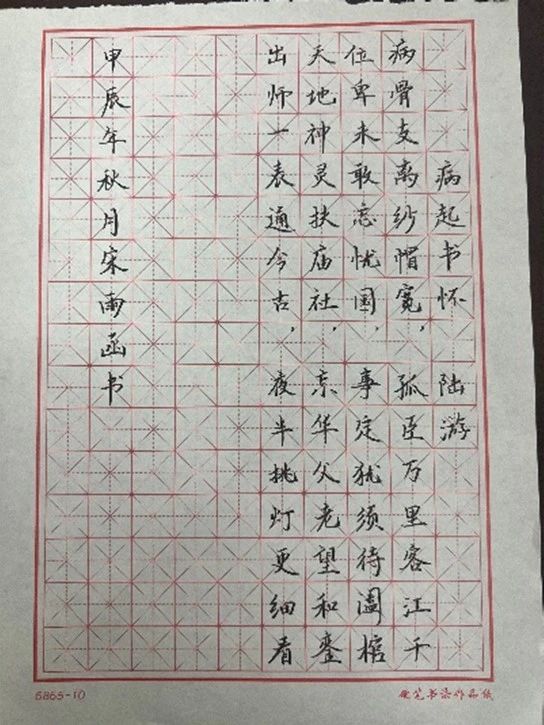 病起书怀 陆游
病骨支离纱帽宽，孤臣万里客江干
位卑未敢忘忧国，事定犹须待阖棺
天地神灵扶庙社，京华父老望和銮
出师一表通今古，夜半挑灯更细看
甲辰年秋月宋雨函书
6865-10
硬笔书法作品纸